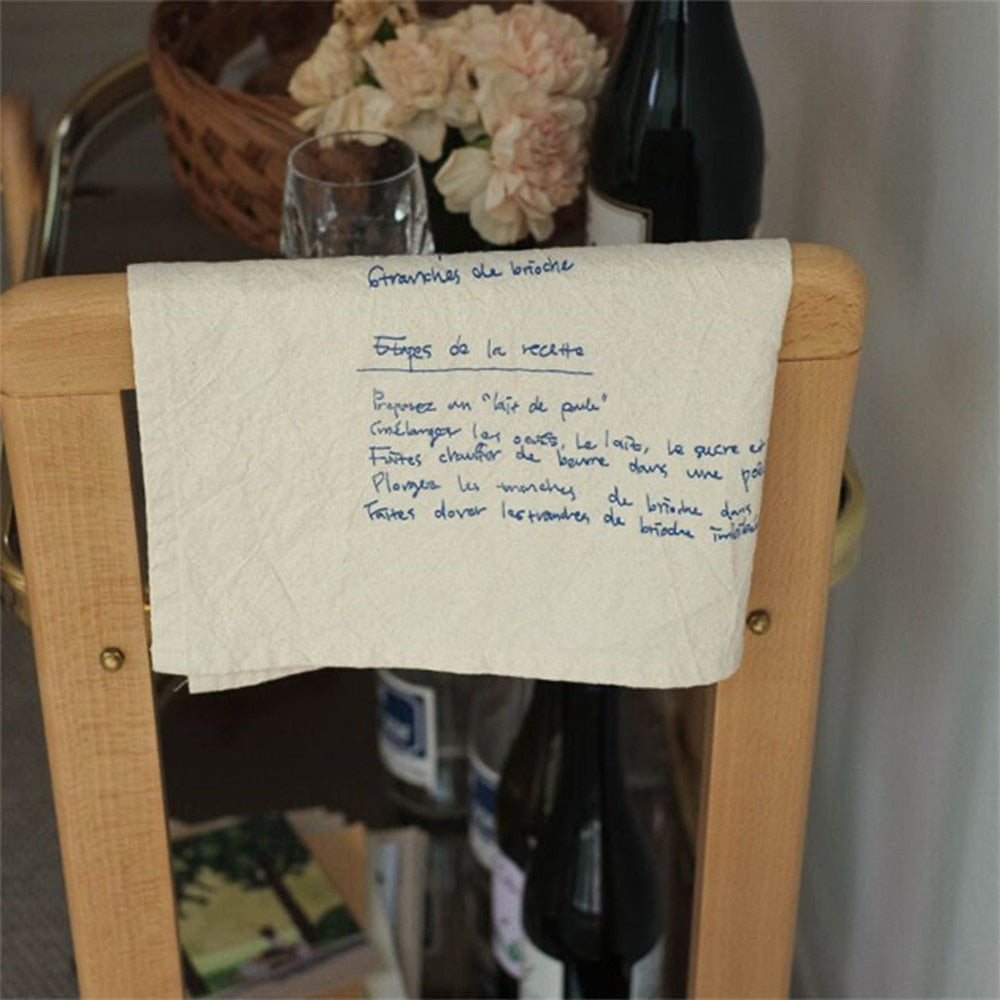 6tranches de brioche
Etapes de la recette
Proposez un "lait de poule"
(mélanger les oeufs, le lait, le sucre et
Faites chauffer de beurre dans une poê
Plongez les tranches de brioche dans
Faites dorer les tranches de brioche imbibé